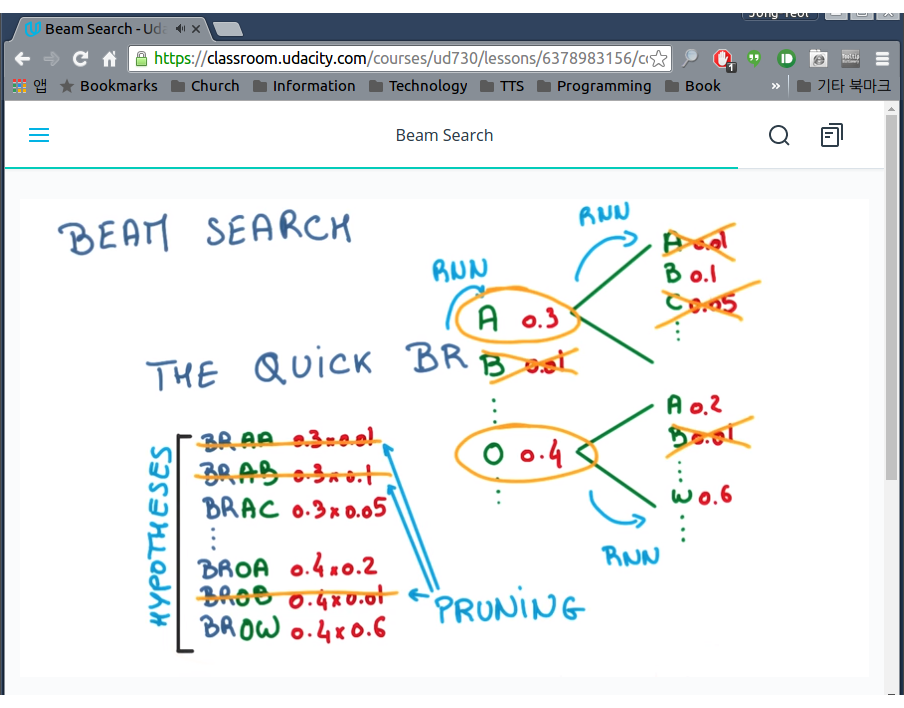 Beam Search - Uda
https://classroom.udacity.com/courses/ud730/lessons/6378983156/c
앱 Bookmarks Church Information Technology TTS Programming Book » 기타 북마크
Beam Search
BEAM SEARCH
RNN
RNN
A 0.01
B 0.1
C 0.05
A 0.3
THE QUICK BR
B 0.01
A 0.2
B 0.01
O 0.4
W 0.6
RNN
HYPOTHESES
BRAA 0.3x0.01
BRAB 0.3x0.1
BRAC 0.3x0.05
BROA 0.4x0.2
BROB 0.4x0.01
BROW 0.4x0.6
PRUNING